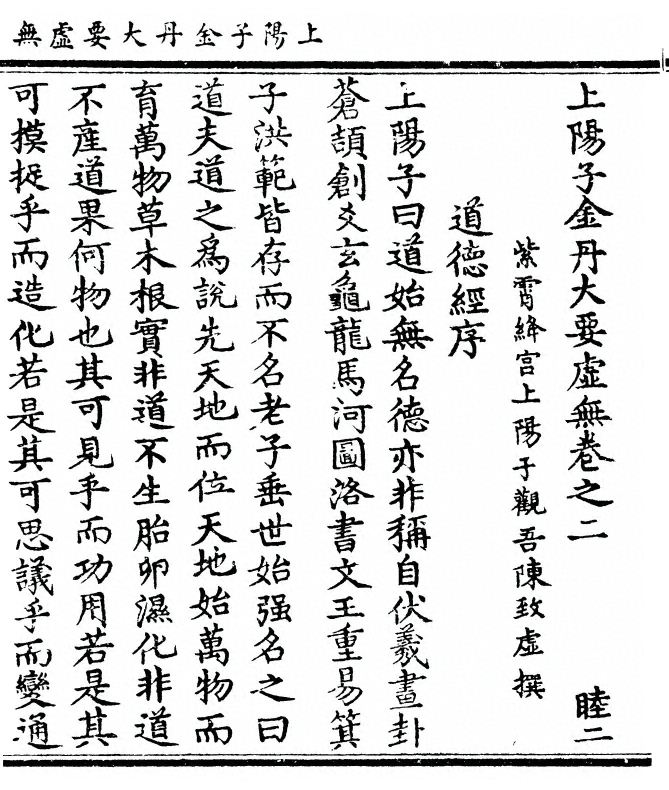 上陽子金丹大要虛無
上陽子金丹大要虛無卷之二
睦二
紫霄絳宮上陽子觀吾陳致虛撰
道德經序
上陽子曰道始無名德亦非稱自伏羲畫卦
蒼頡創爻玄龜龍馬河圖洛書文王重易箕
子洪範皆存而不名老子垂世始强名之曰
道夫道之爲說先天地而位天地始萬物而
育萬物草木根實非道不生胎卵濕化非道
不產道果何物也其可見乎而功用若是其
可摸捉乎而造化若是其可思議乎而變通